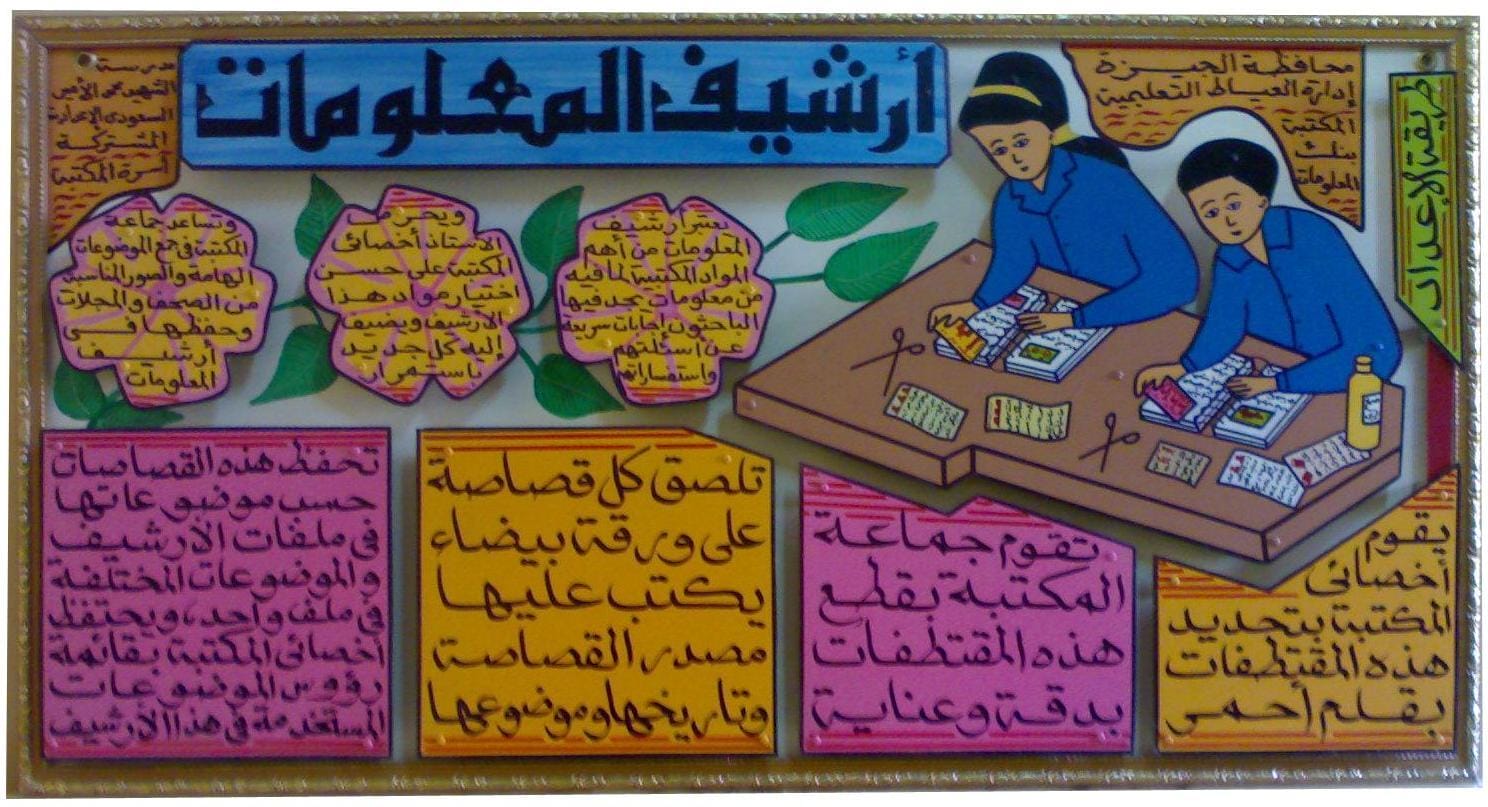 أرشيف المعلومات
محافظة الجيزة
إدارة العياط التعليمية
المكتبة
بنك
المعلومات
مدرسة
الشهيد محمد الأمير
السعودي الإعدادية
المشتركة
أسرة المكتبة
يعتبر أرشيف
المعلومات من أهم
المواد المكتبية لما فيه
من معلومات يجد فيها
الباحثون إجابات سريعة
عن أسئلتهم
واستفساراتهم
ويحرص
الاستاذ أخصائى
المكتبة على حسن
اختيار مواد هذا
الأرشيف ويضيف
إليه كل جديد
باستمرار
وتساعد جماعة
المكتبة فى جمع الموضوعات
الهامة والصور المناسبة
من الصحف والمجلات
وحفظها فى
أرشيف
المعلومات
طريقة الإعداد
يقوم
أخصائى
المكتبة بتحديد
هذه المقتطفات
بقلم أحمر
تقوم جماعة
المكتبة بقطع
هذه المقتطفات
بدقة وعناية
تلصق كل قصاصة
على ورقة بيضاء
يكتب عليها
مصدر القصاصة
وتاريخها وموضوعها
تحفظ هذه القصاصات
حسب موضوعاتها
فى ملفات الأرشيف
والموضوعات المختلفة
فى ملف واحد، ويحتفظ
أخصائى المكتبة بقائمة
رؤوس الموضوعات
المستخدمة فى هذا الأرشيف